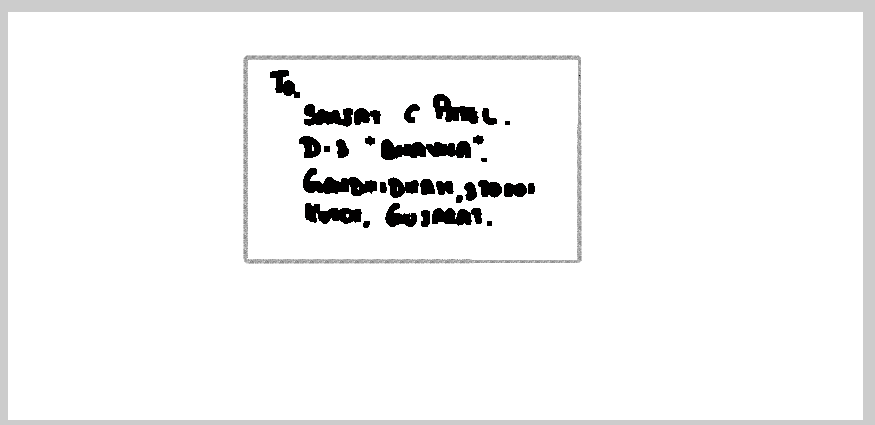 To,
SANJAY C PATEL.
D-3 "BHAVNA".
GANDHIDHAM, 370201
KUTCH, GUJARAT.